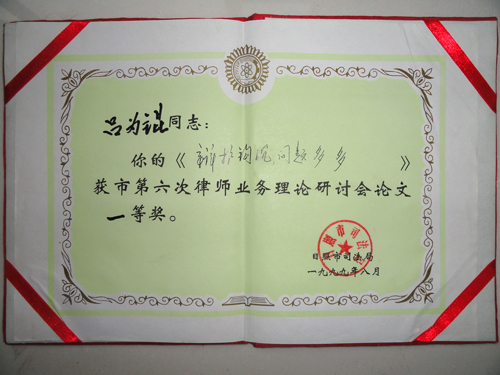 吕为锟同志:
你的《 问题多多 》
获市第六次律师业务理论研讨会论文
一等奖。
日照市司法局
日照市司法局
一九九九年八月